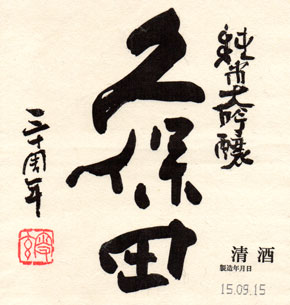 純米大吟醸
久保田
三十周年
清酒
製造年月日
15.09.15